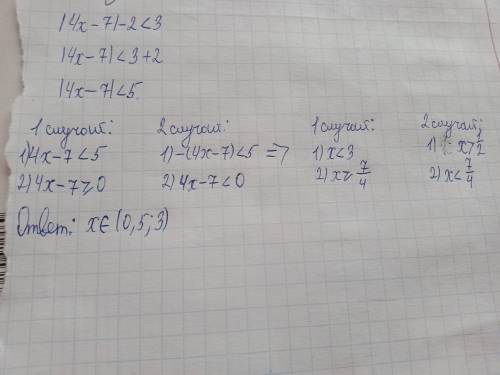 |4x-7|-2<3
|4x-7|<3+2
|4x-7|<5.
1 случай: 2 случай: 1 случай: 2 случай:
1) 4x-7<5 1) -(4x-7)<5 => 1) x<3 1) x>1/2
2) 4x-7⩾0 2) 4x-7<0 2) x⩾7/4 2) x<7/4
Ответ: x∈(0,5;3)